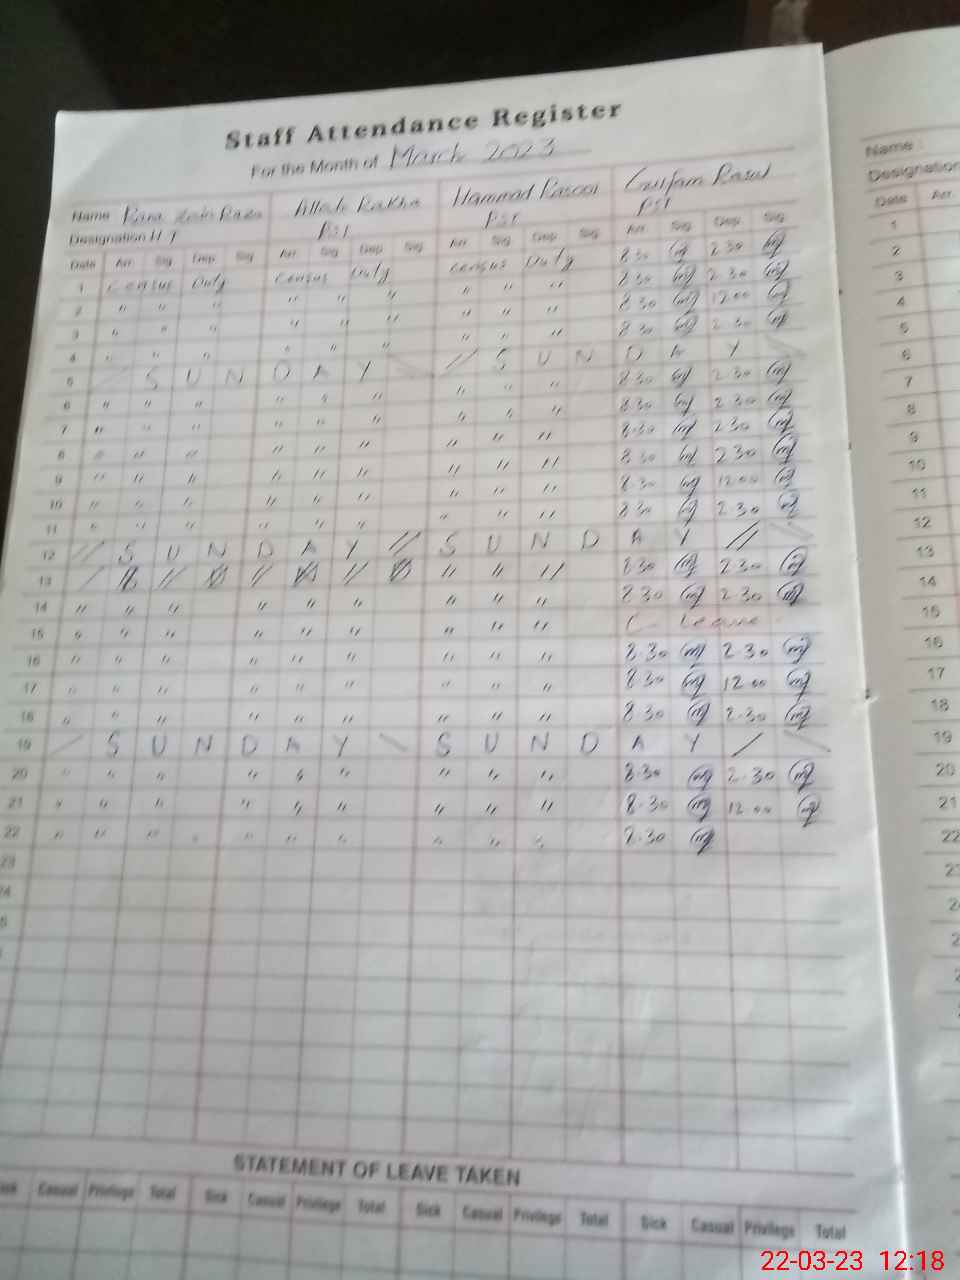 Staff Attendance Register
For the Month of March 2023
Name Rana Zain Raza Allah Rakha Hammad Rasool Gulfam Rasul
Designation H.T PST PST PST
Date Arr. Sig Dep. Sig Arr. Sig Dep. Sig Arr. Sig Dep. Sig Arr. Sig Dep. Sig
1 Census Duty Census Duty Census Duty 8.30 2.30
2 " " " " " " " " " 8.30 2.30
3 " " " " " " " " " 8.30 12.00
4 " " " " " " " " " 8.30 2.30
5 S U N D A Y // S U N D A Y
6 " " " " " " " " " 8.30 2.30
7 " " " " " " " " " 8.30 2.30
8 " " " " " " " " " 8.30 2.30
9 " " " " " " " " " 8.30 2.30
10 " " " " " " " " " 8.30 12.00
11 " " " " " " " " " 8.30 2.30
12 // S U N D A Y // S U N D A Y //
13 " " " " " 8.30 2.30
14 " " " " " " " " " 8.30 2.30
15 " " " " " " " " " C- Leave
16 " " " " " " " " " 8.30 2.30
17 " " " " " " " " " 8.30 12.00
18 " " " " " " " " " 8.30 2.30
19 / S U N D A Y \ S U N D A Y /
20 " " " " " " " " " 8.30 2.30
21 " " " " " " " " " 8.30 12.00
22 " " " " " " " " " 8.30
23
STATEMENT OF LEAVE TAKEN
Casual Privilege Total Sick Casual Privilege Total Sick Casual Privilege Total Sick Casual Privilege Total
Name :
Designation
Date Arr.
1
2
3
4
5
6
7
8
9
10
11
12
13
14
15
16
17
18
19
20
21
22
22-03-23 12:18